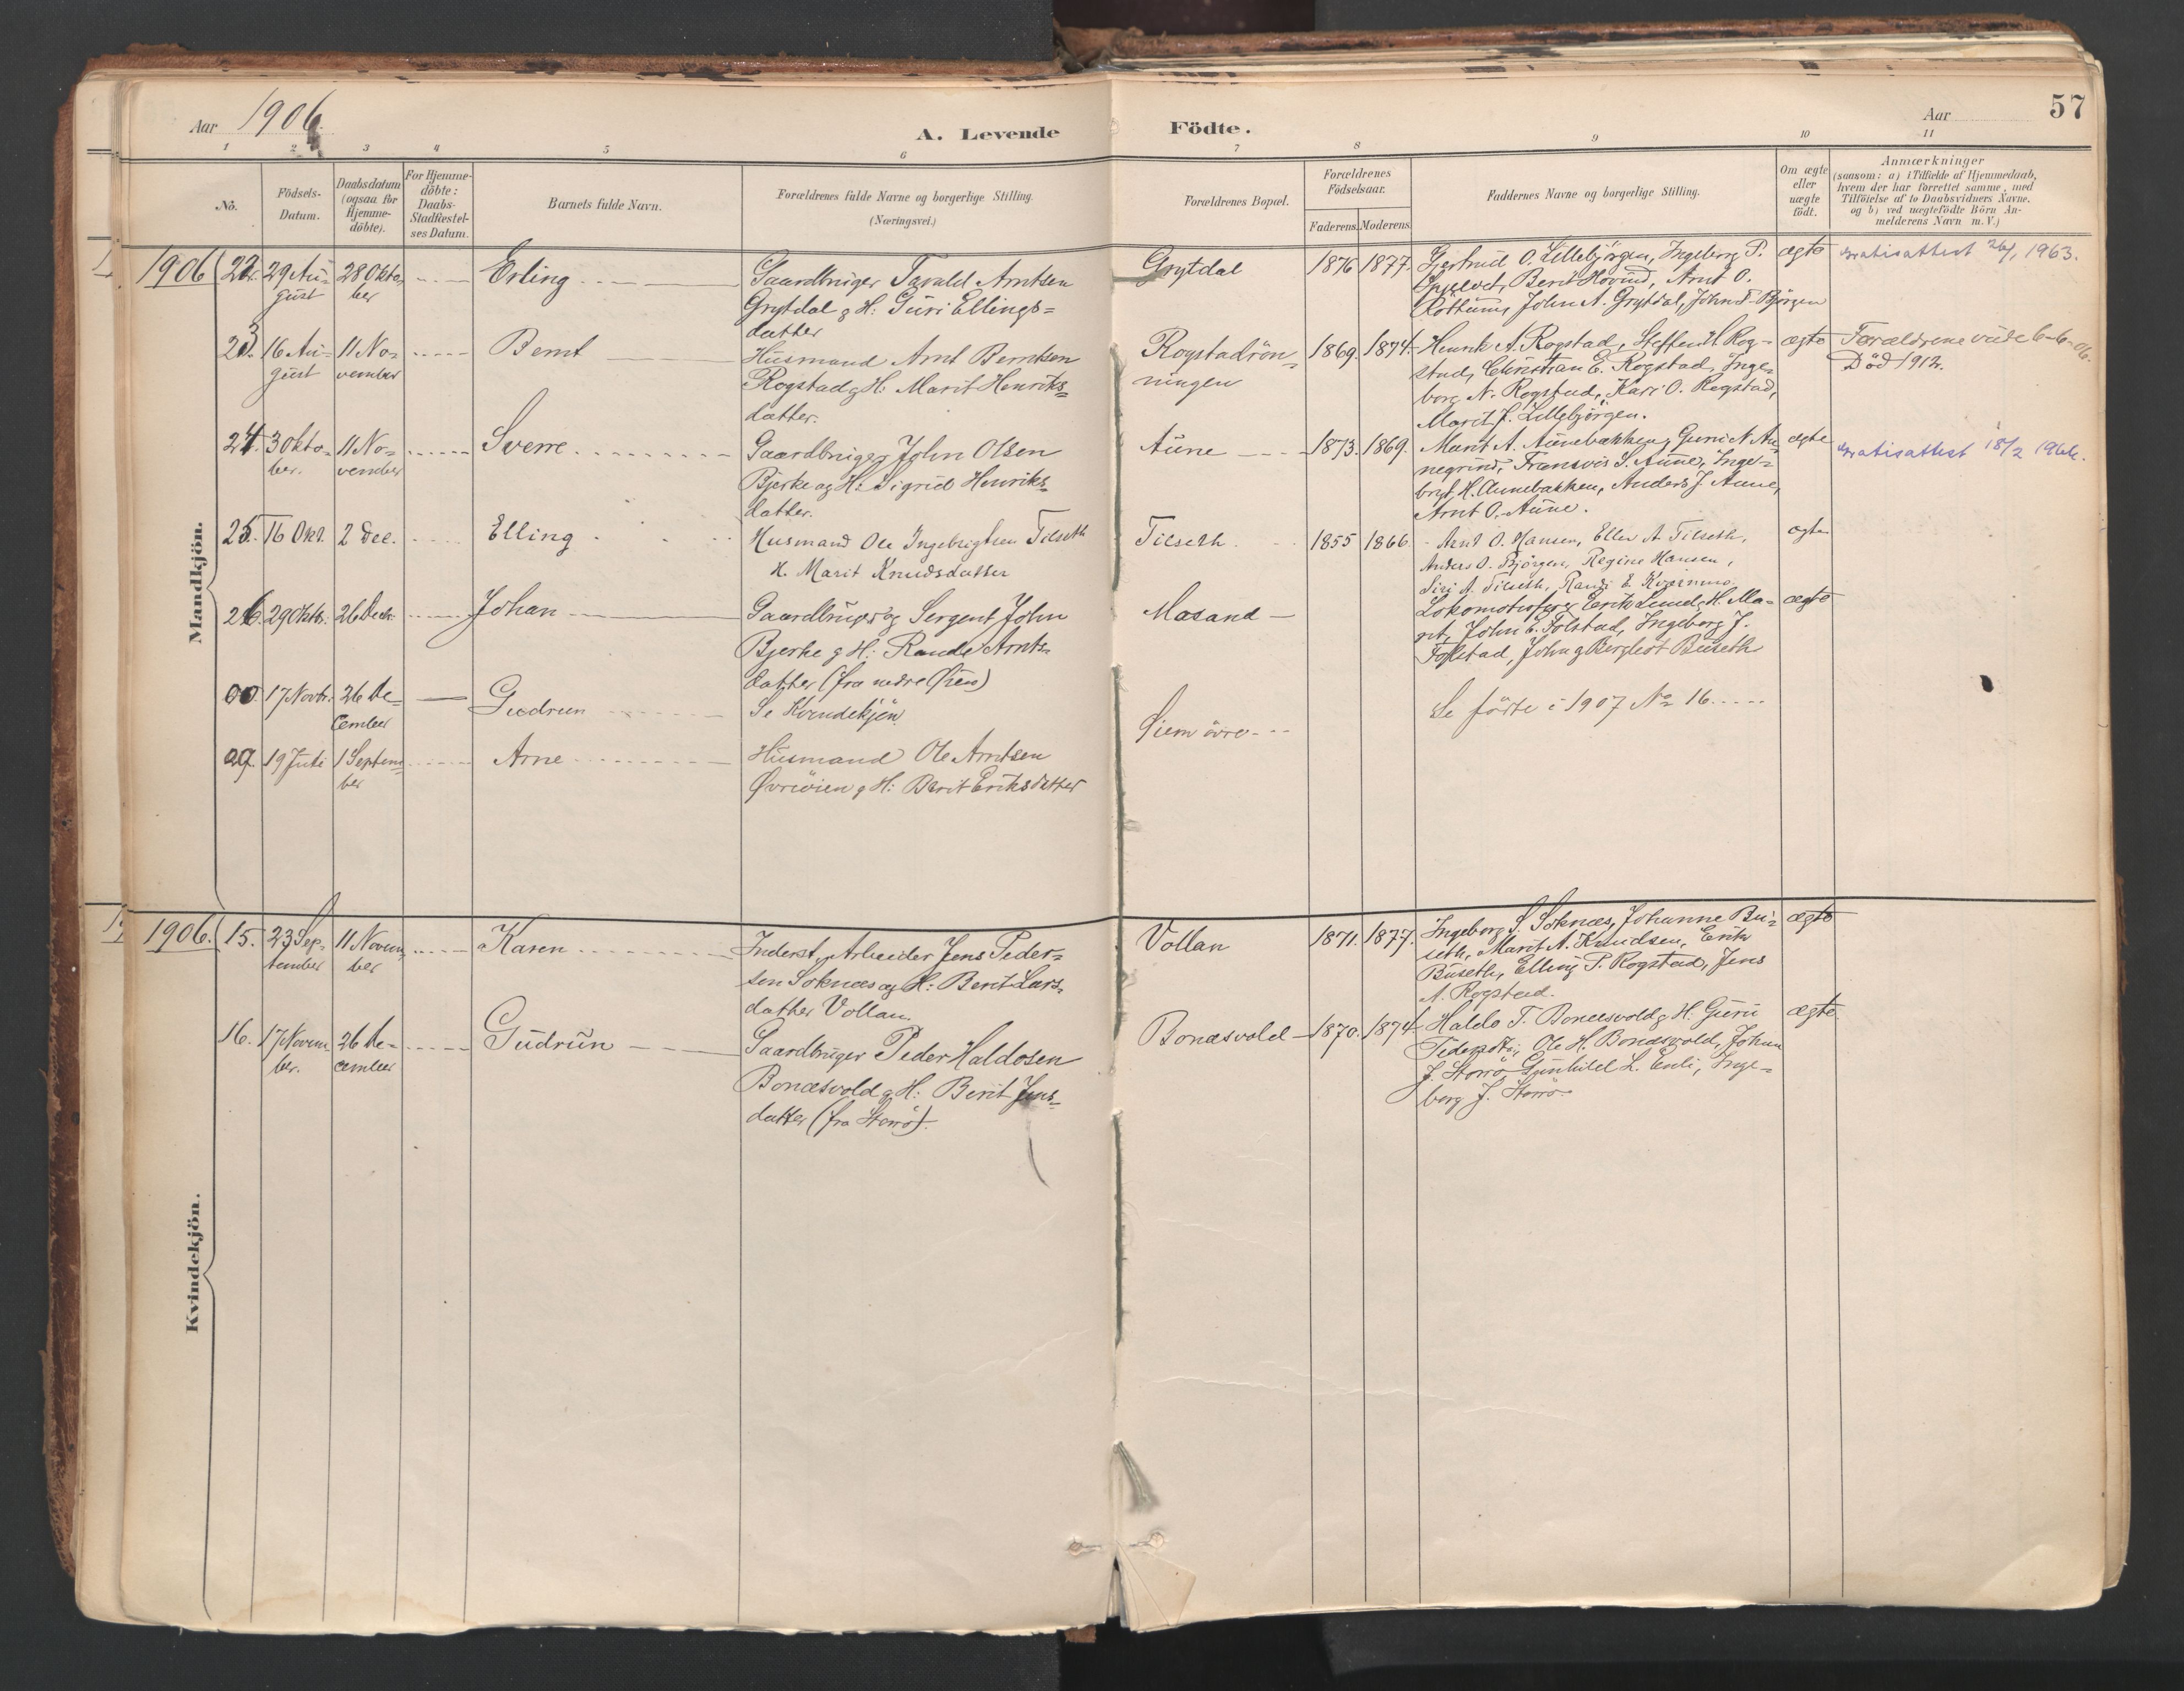 Aar 1906.
A. Levende Födte.
Aar
57
1 2 3 4 5 6 7 8 9 10 11
No.
Födsels-
Datum.
Daabsdatum
(ogsaa for
Hjemme-
döbte).
For Hjemme-
döbte:
Daabs-
Stadfæstel-
ses Datum.
Barnets fulde Navn.
Forældrenes fulde Navne og borgerlige Stilling.
(Næringsvei.)
Forældrenes Bopæl.
Forældrenes
Födselsaar.
Faderens. Moderens.
Faddernes Navne og borgerlige Stilling.
Om ægte
eller
uægte
födt.
Anmærkninger
(saasom: a) i Tilfælde af Hjemmedaab,
hvem der har forrettet samme, med
Tilföielse af to Daabsvidners Navne.
og b) ved uægtefödte Börn An-
melderens Navn m. V.)
Mandkjön.
1906 22. 29 Au-
gust
28 Okto-
ber
Erling
Gaardbruger Tarald Arntsen
Grytdal g H: Guri Ellings-
datter
Grytdal
1876 1877.
Gjertrud O. Lillebjörgen, Ingeborg P.
Berit Hovind, Arnt O.
Röttum, John A. Grytdal, John Bjørgen
ægte
Gratisattest 26/1 1963.
23. 16 Au-
gust
11 No-
vember
Bernt
Husmand Arnt Berntsen
Rogstad g H: Marit Henriks-
datter.
Rogstadrön-
ningen
1869. 1874.
Henrik A. Rogstad, Steffen H. Rog-
stad, Christian E. Rogstad, Inge-
borg N. Rogstad, Kari O. Rogstad,
Marit J. Lillebjörgen.
ægte
Forældrene viede 6-6-06.
Död 1912.
24. 3 Okto-
ber.
11 No-
vember
Sverre
Gaardbruger John Olsen
Bjerke og H: Sigrid Henriks-
datter.
Aune
1873. 1869.
Marit A. Aunebakken, Guri N. Au-
negrind, Fransois S. Aune, Inge-
brigt H. Aunebakken, Anders J. Aune,
Arnt O. Aune.
ægte
Gratisattest 18/2 1966.
25. 16 Okt. 2 Dec.
Elling
Husmand Ole Ingebrigtsen Tilseth
H. Marit Knudsdatter
Tilseth.
1855 1866.
Arnt O. Hansen, Ellen A. Tilseth,
Anders O. Bjørgen, Regine Hansen,
Siri A. Tilseth, Randi E. Kværnmo.
ægte
26. 29 Oktbr. 26 Decb.
Johan
Gaardbruger og Sergent John
Bjerke g H: Randi Arnts-
datter (fra nedre Øien)
Mosand
Lokomotivfyrer Erik Lund g H. Ma-
rit, John E. Folstad, Ingeborg J.
Folstad, John g Bergliot Buseth
ægte
00. 17 Novbr. 26 De-
cember
Gudrun
Se Kvindekjön
Se fødte i 1907 No 16
29. 19 Juli 1 Septem-
ber
Arne
Husmand Ole Arntsen
Øvreøien g H: Berit Eriksdatter
Siem övre
Kvindekjön.
1906. 15. 23 Sep-
tember
11 Novem-
ber
Karen
Inderst, Arbeider Jens Peder-
sen Soknæs og H: Berit Lars-
datter Vollan.
Vollan
1871. 1877.
Ingeborg S. Soknæs, Johanne Bu-
seth, Marit A. Knudsen, Erik
Buseth, Elling P. Rogstad, Jens
A. Rogstad.
ægte
16. 17 Novem-
ber.
26 De-
cember
Gudrun
Gaardbruger Peder Haldosen
Bonæsvold g H: Berit Jens-
datter (fra Storrö).
Bonæsvold
1870. 1874
Haldo T. Bonæsvold g H. Guru
Pedersdtr, Ole H. Bonæsvold, Johan
J. Storrö, Gunhild L. Enli, Inge-
borg J. Storrö
ægte